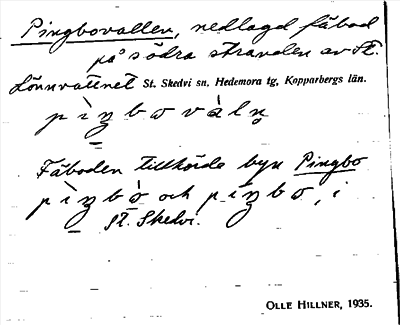 Pingbovallen, nedlagd fäbod
på södra stranden av St.
Lönnvattnet St. Skedvi sn, Hedemora tg, Kopparbergs län.
Fäboden tillhörde byn Pingbo
och i
St. Skedvi.
OLLE HILLNER, 1935.